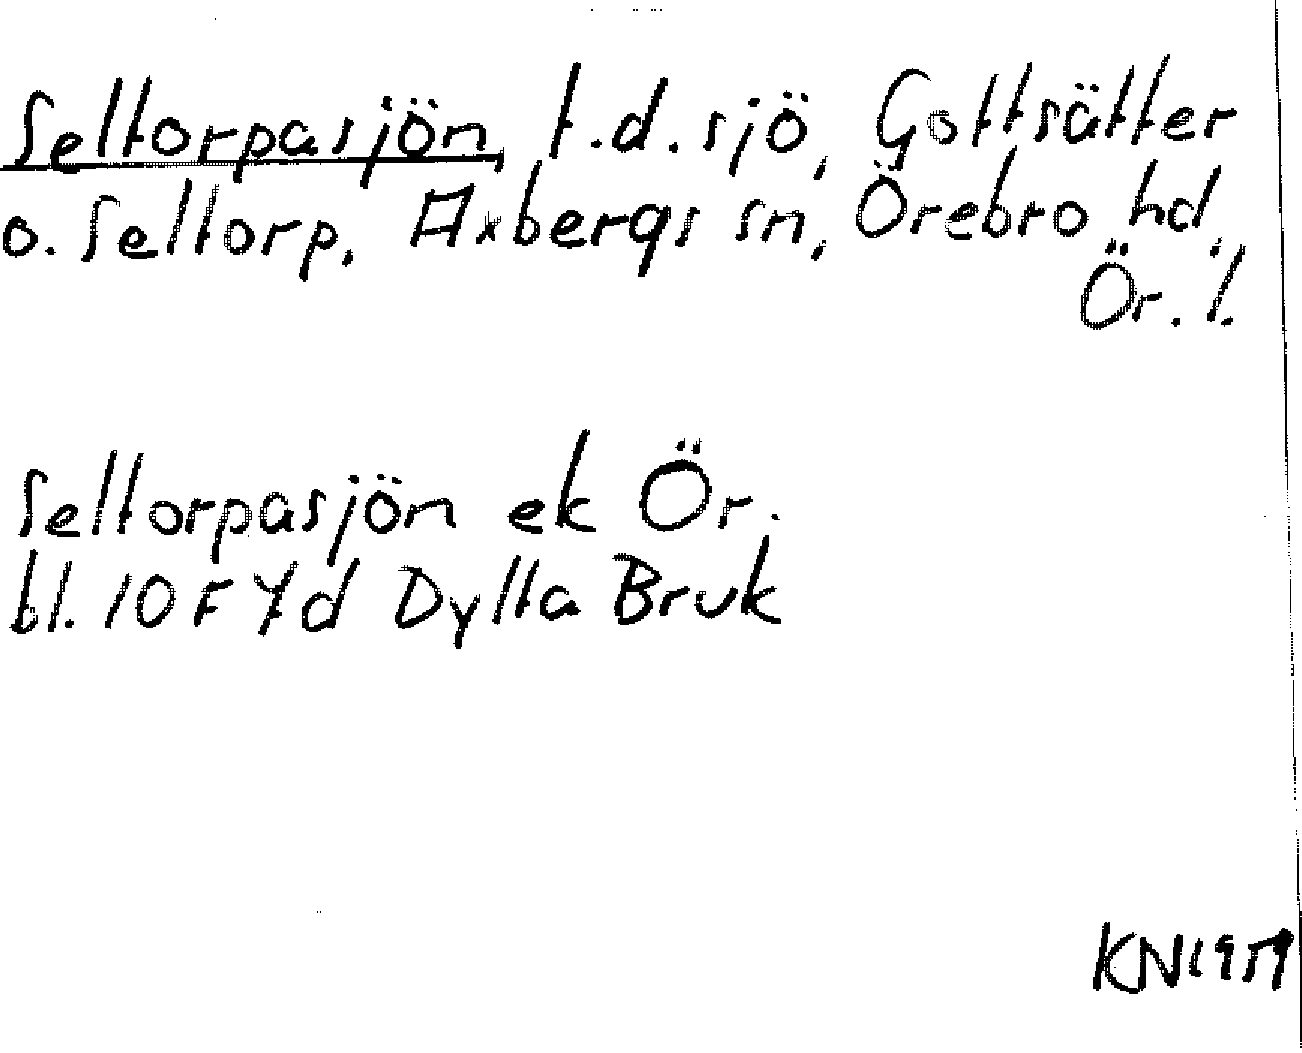 Seltorpasjön, t.d. sjö, Gottsätter
o. Seltorp. Axbergs sn, Örebro hd,
Ör. l.
Seltorpasjön ek Ör.
bl. 10 F 7d Dylta Bruk